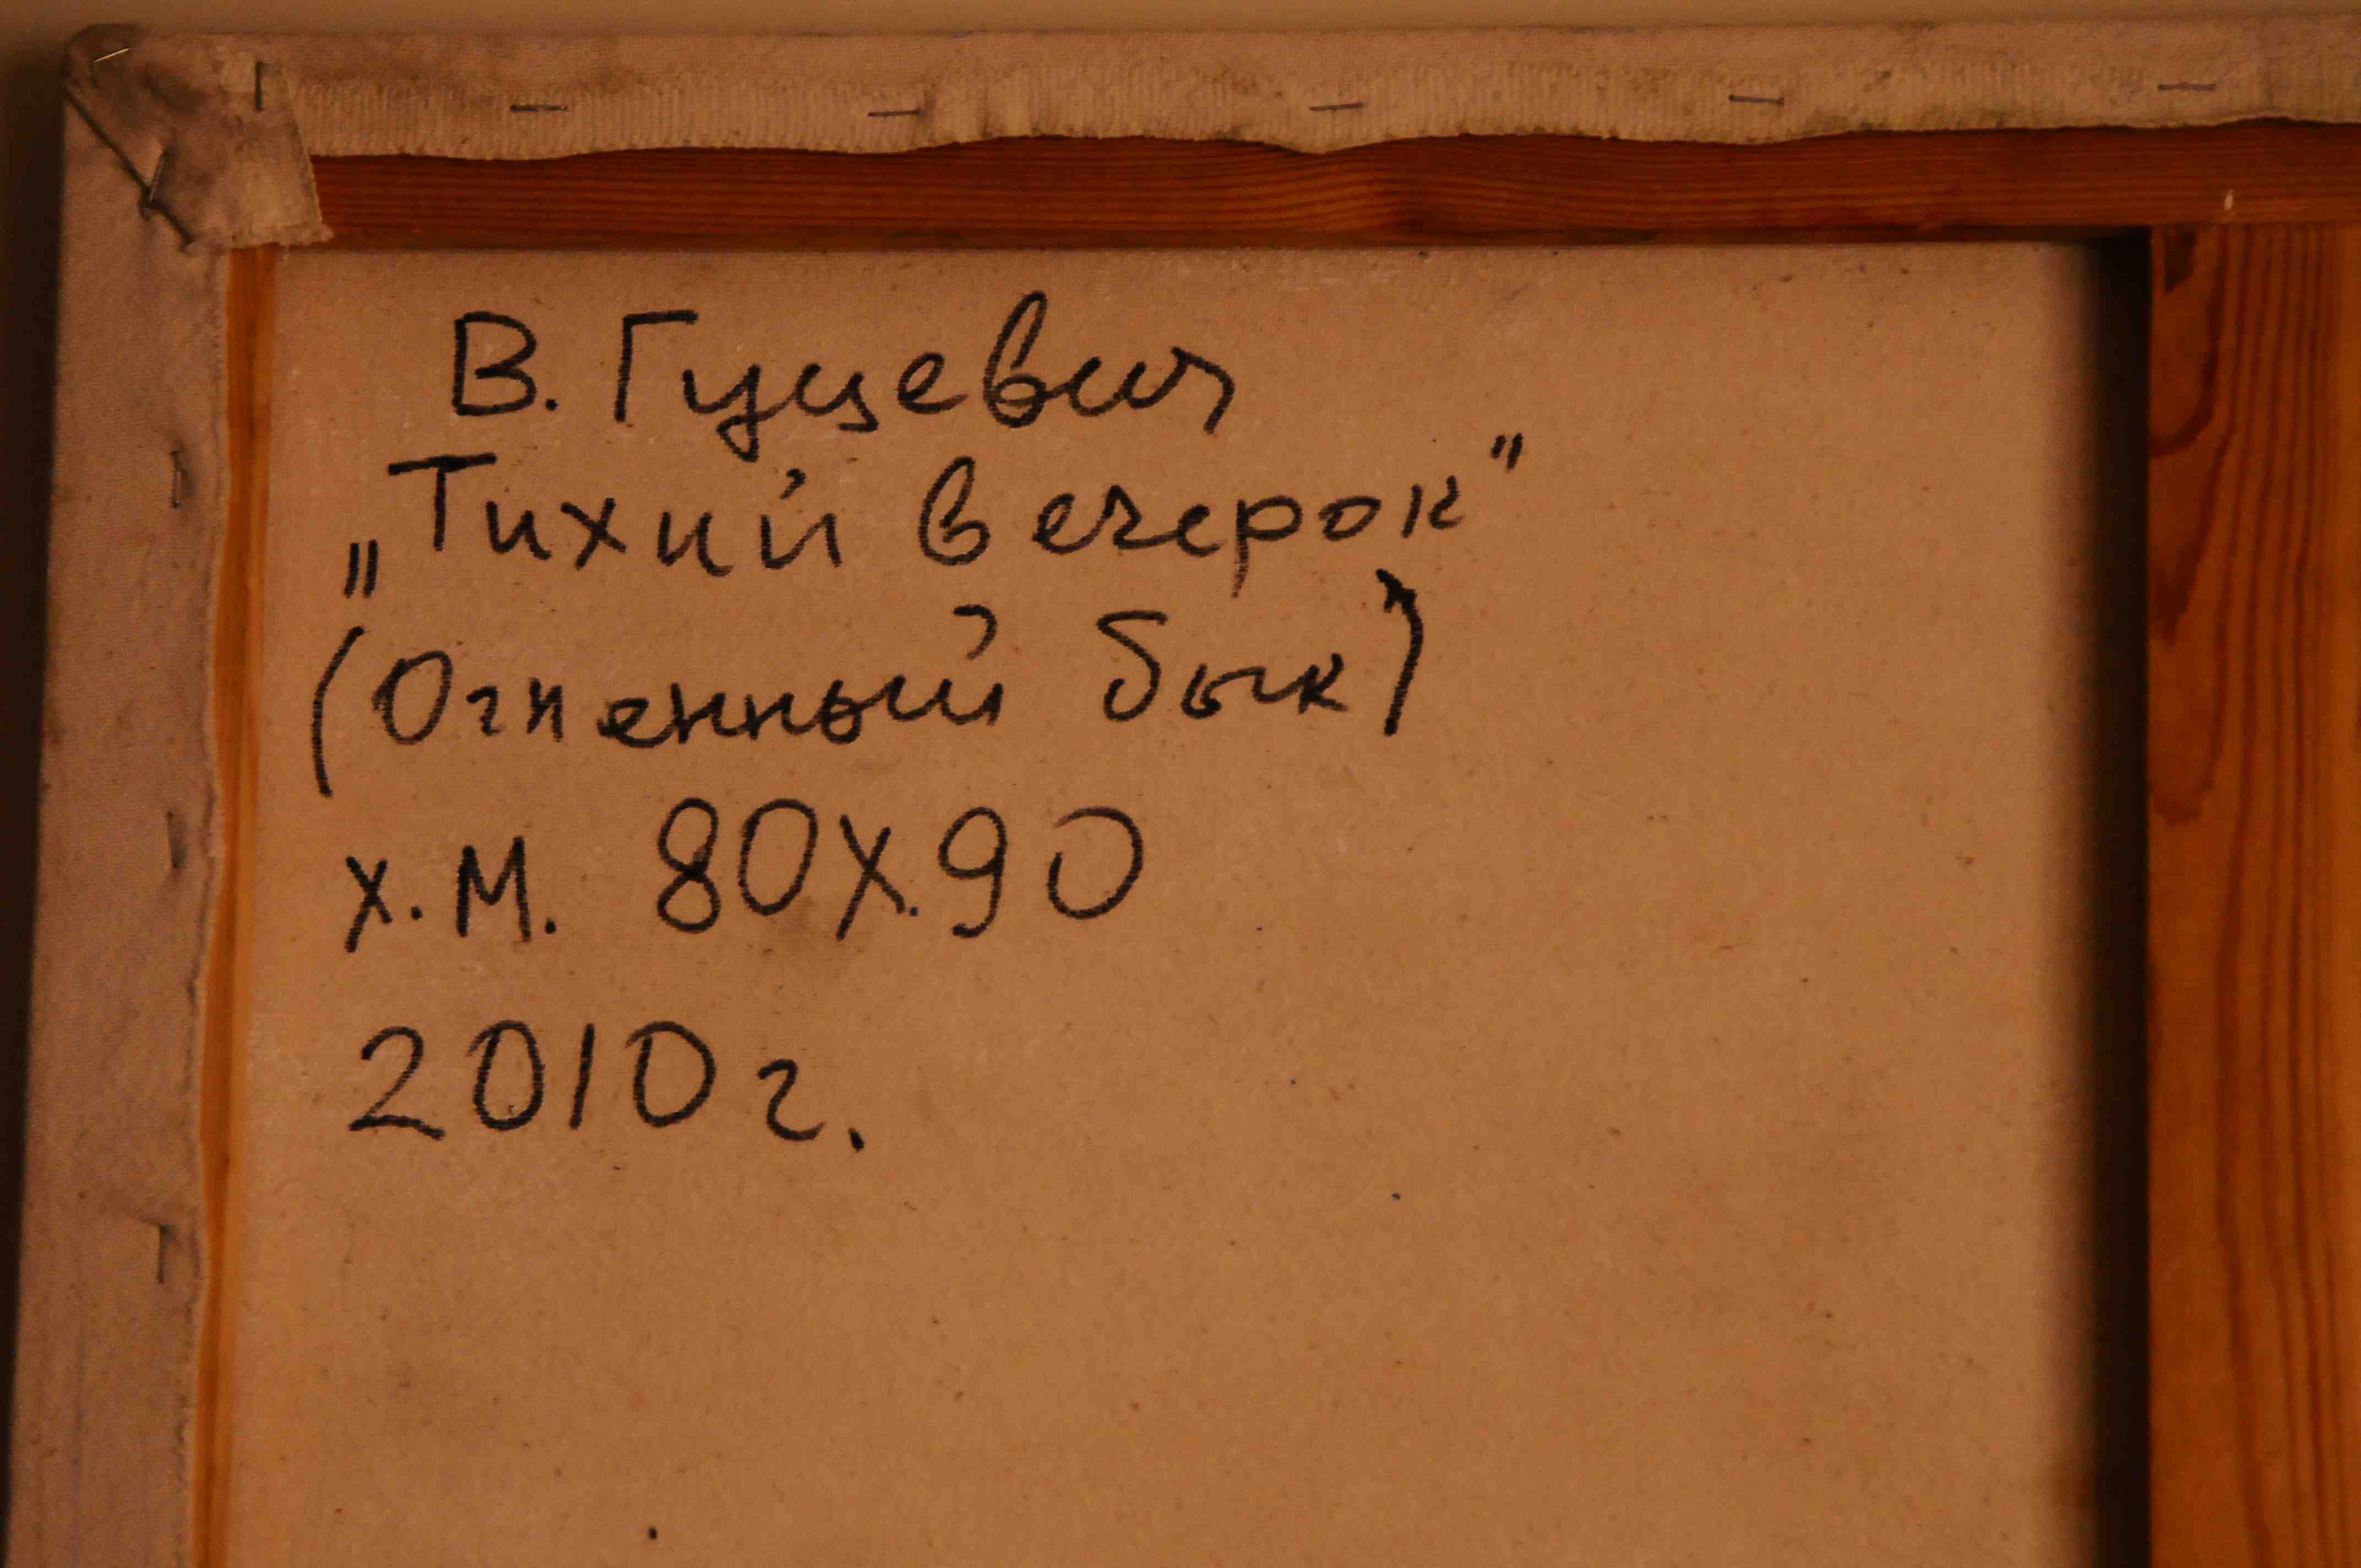 В. Гуцевич
„Тихий вечерок"
(Огненный бык)
х.м. 80х90
2010 г.